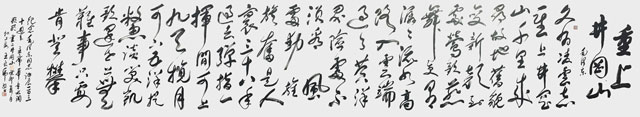 重上
井岡山
毛澤東
久有凌雲志
重上井岡
山千里來
尋故地舊貌
變新顔到
處鶯歌燕
舞更有
潺潺流水高
路入雲端
過了黄洋
界險處不
須看風
雷動旌
旗奮是人
寰三十八年
過去彈指一
揮間可上
九天攬月
可下五洋捉
鱉談笑凱
歌還世上無
難事只要
肯登攀